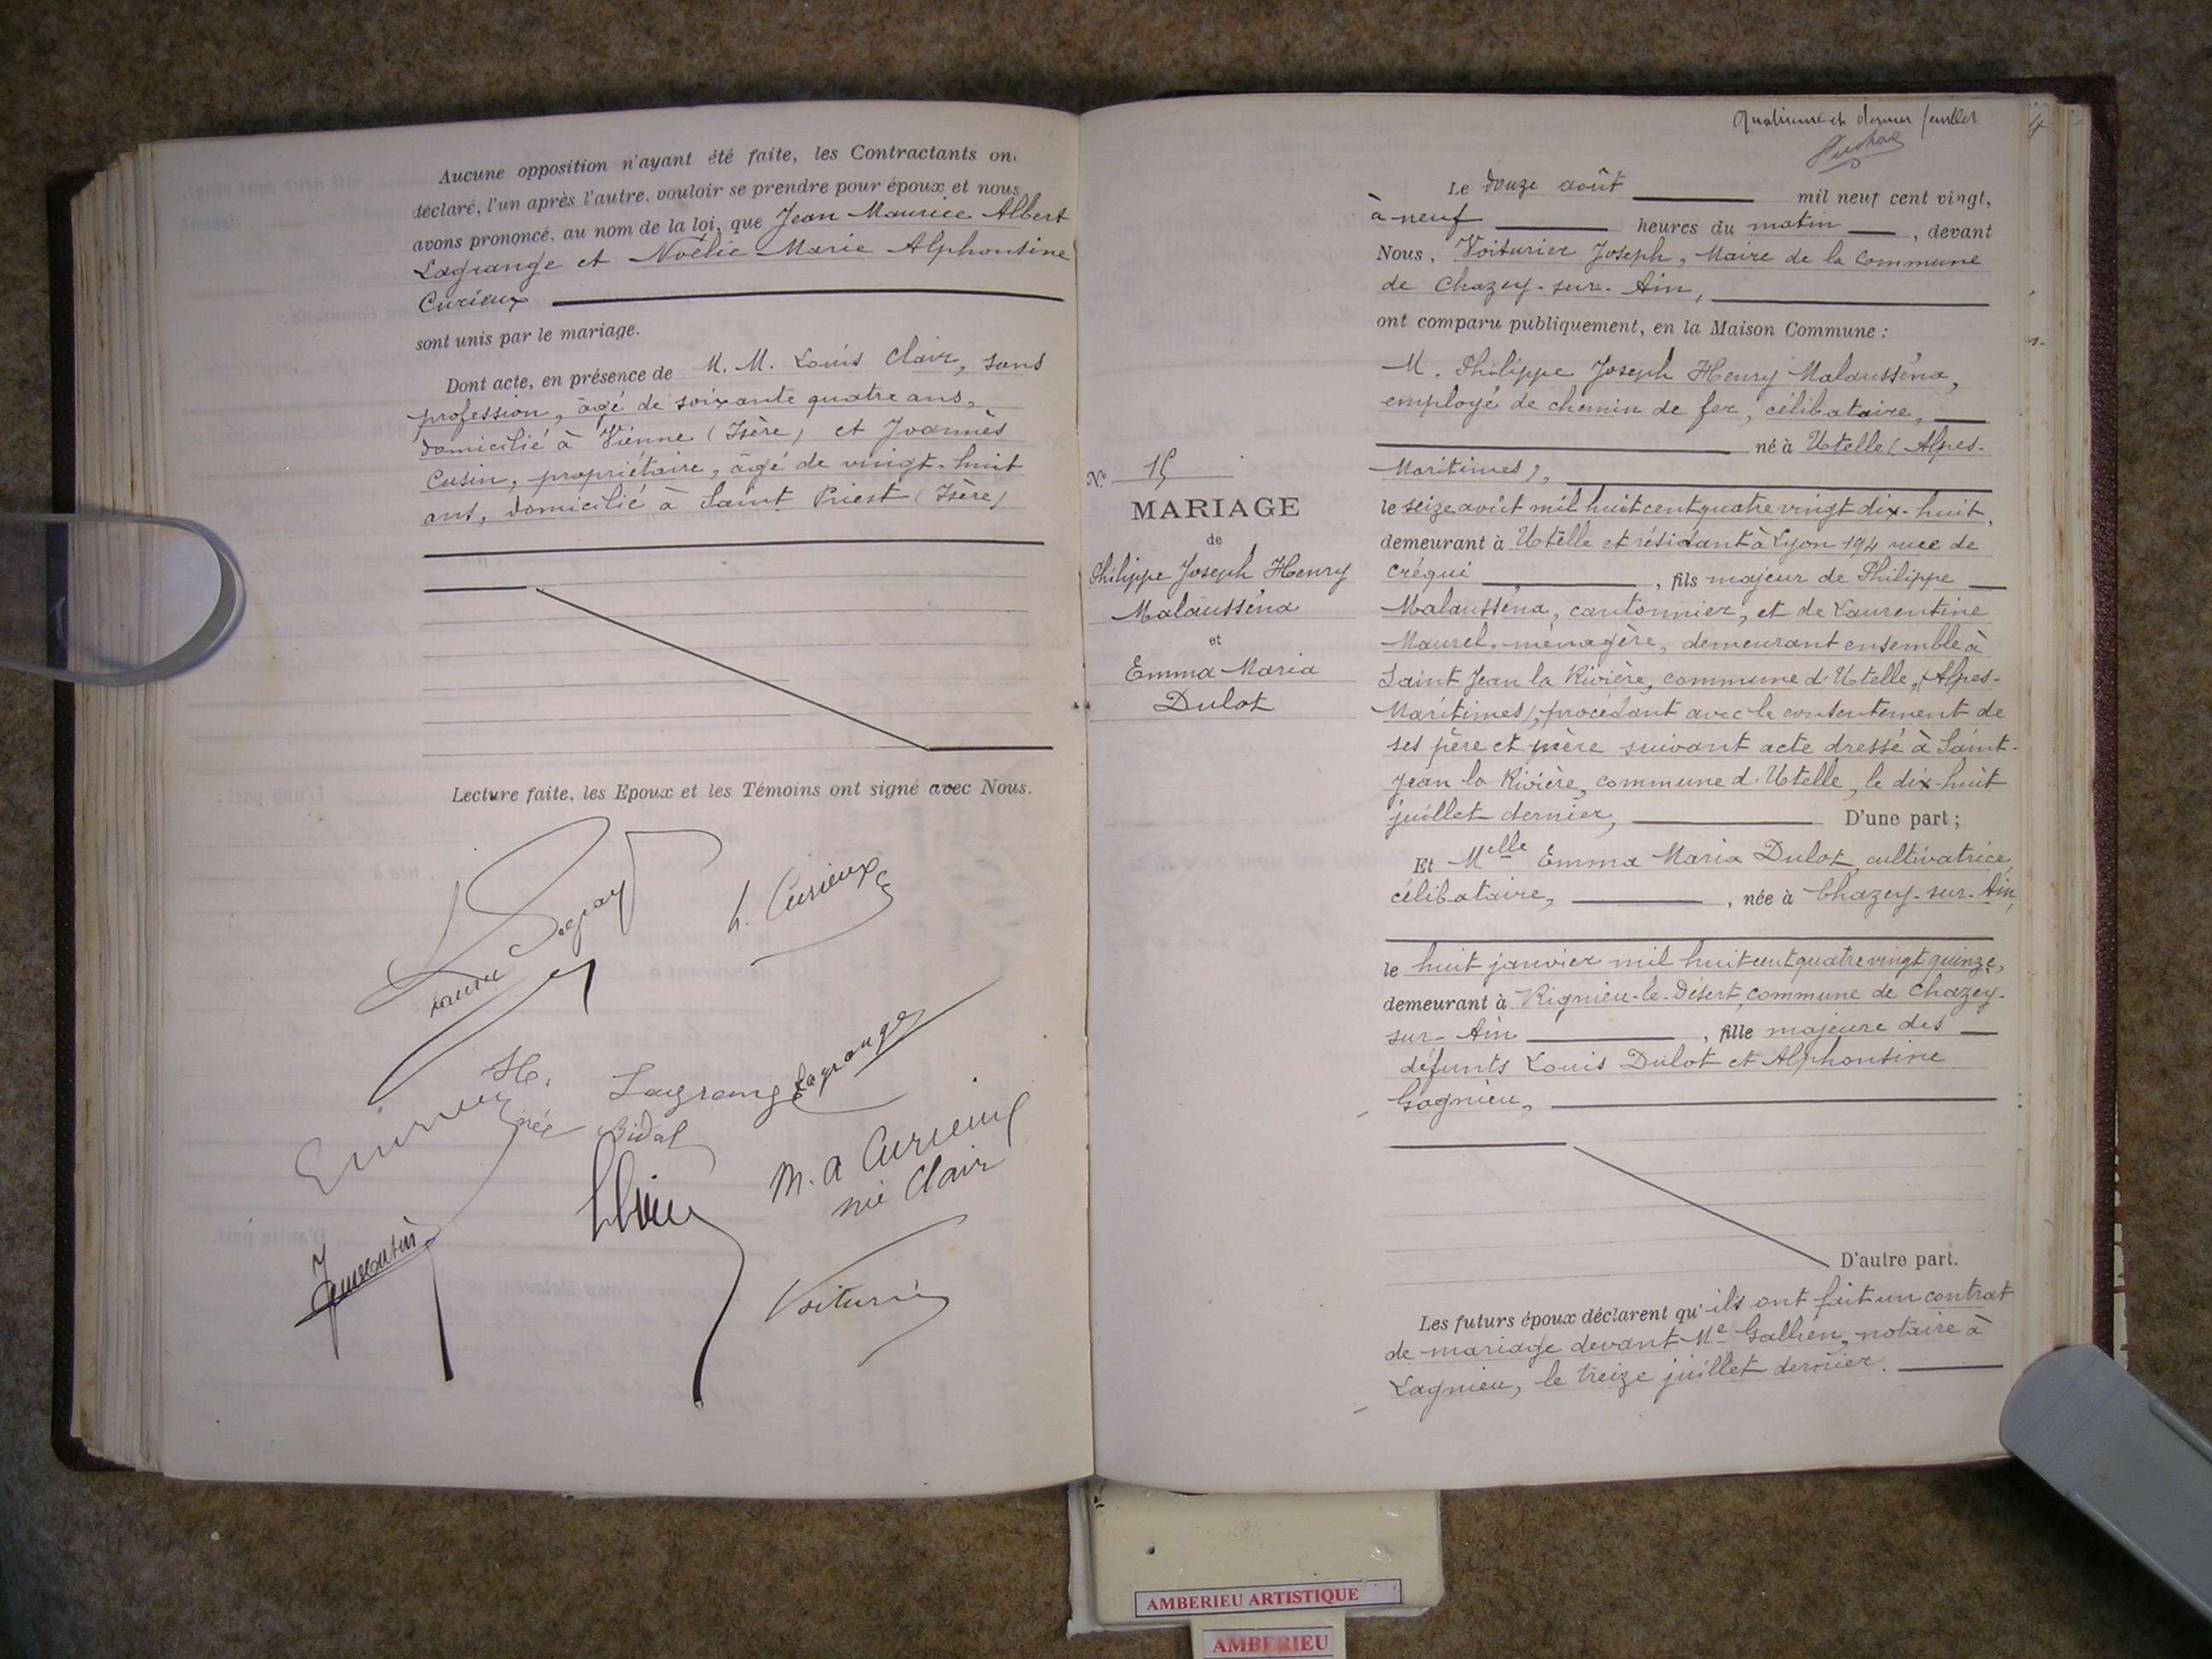 Aucune opposition n'ayant été faite, les Contractants on
déclaré, l'un après l'autre, vouloir se prendre pour époux et nous
avons prononcé, au nom de la loi, que Jean Maurice Albert
Lagrange et Noëlie Marie Alphonsine
Curieux
sont unis par le mariage.
Dont acte, en présence de M. M. Louis Clair, sans
profession, âgé de soixante quatre ans,
domicilié à Vienne (Isère) et Joannès
Cusin, propriétaire, âgé de vingt-huit
ans, domicilié à Saint Priest (Isère)
Lecture faite, les Epoux et les Témoins ont signé avec Nous.
L. Curieux
H. Lagrange Lagrange
née Bidal
M. A Curieux
née Clair
Voiturier
Quatrième et dernier feuillet
4
Le douze août mil neuf cent vingt,
à neuf heures du matin, devant
Nous, Voiturier Joseph, Maire de la Commune
de Chazey-sur-Ain,
ont comparu publiquement, en la Maison Commune :
M. Philippe Joseph Henry Malausséna,
employé de chemin de fer, célibataire,
né à Utelle (Alpes-
Maritimes),
le seize août mil huit cent quatre vingt dix-huit,
demeurant à Utelle et résidant à Lyon 194 rue de
Créqui, fils majeur de Philippe
Malausséna, cantonnier, et de Laurentine
Maurel, ménagère, demeurant ensemble à
Saint Jean la Rivière, commune d'Utelle, (Alpes-
Maritimes), procédant avec le consentement de
ses père et mère suivant acte dressé à Saint-
Jean la Rivière, commune d'Utelle, le dix-huit
juillet dernier, D'une part ;
Et Melle Emma Maria Dulot, cultivatrice,
célibataire, née à Chazey-sur-Ain,
le huit janvier mil huit cent quatre vingt quinze,
demeurant à Rignieu-le-Désert, commune de Chazey-
sur-Ain, fille majeure des
défunts Louis Dulot et Alphonsine
Gagnieu,
D'autre part.
Les futurs époux déclarent qu'ils ont fait un contrat
de mariage devant Me Gallien, notaire à
Lagnieu, le treize juillet dernier.
No 15
MARIAGE
de
Philippe Joseph Henry
Malausséna
et
Emma Maria
Dulot
AMBERIEU ARTISTIQUE
AMBERIEU